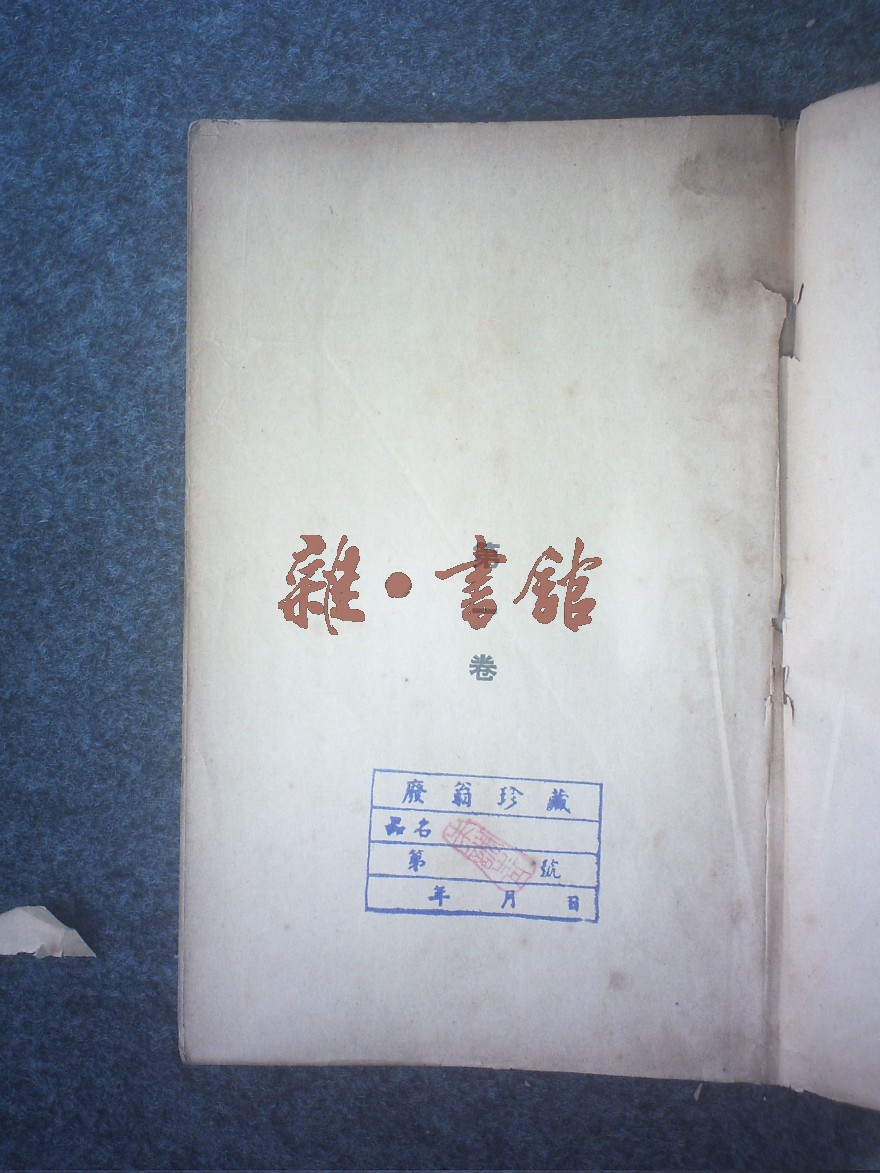 第一卷
雜·書館
廢翁珍藏
品名
第 號
年 月 日